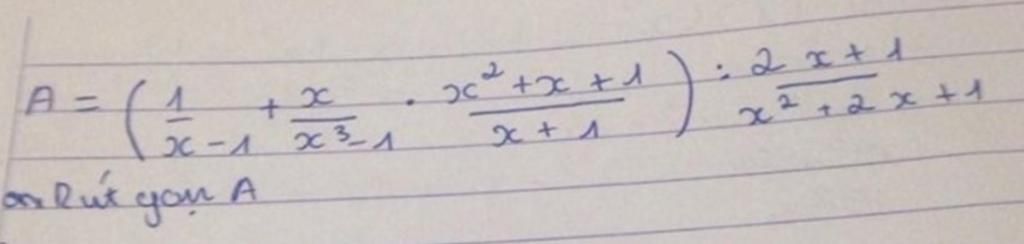 A = ( 1/(x-1) + x/(x³-1) · (x²+x+1)/(x+1) ) : (2x+1)/(x²+2x+1)
Rút gọn A